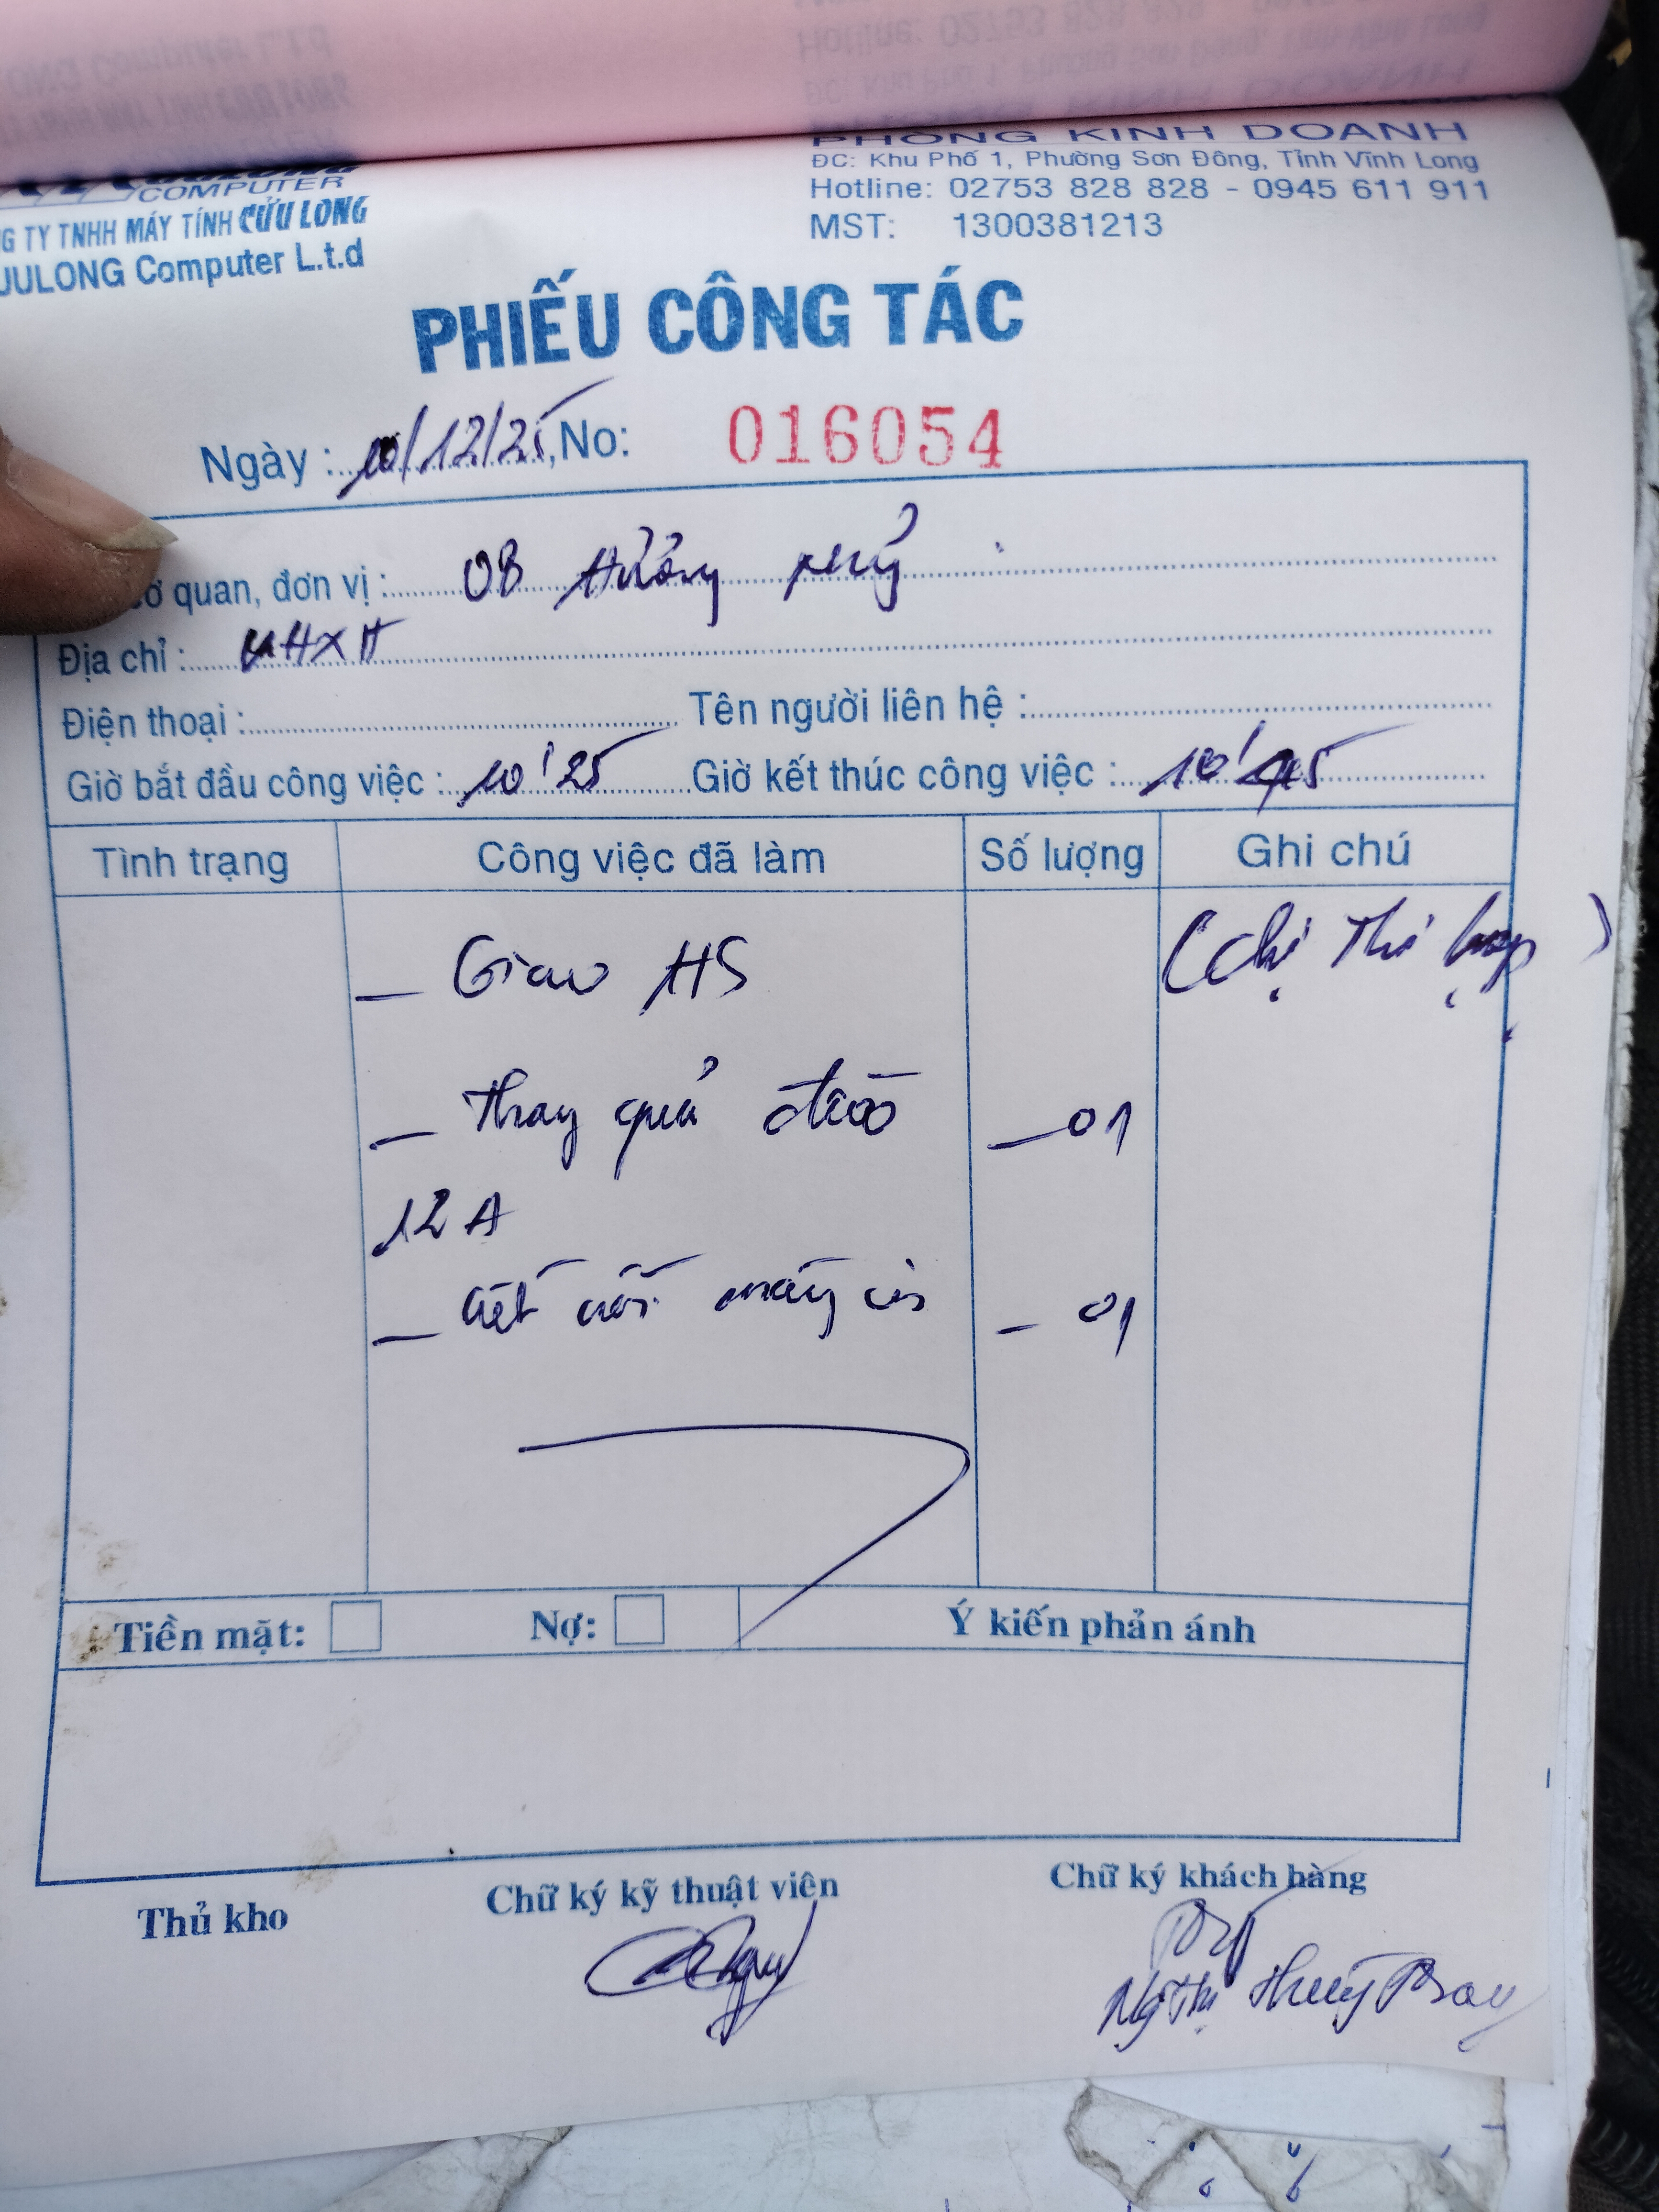 COMPUTER
G TY TNHH MÁY TÍNH CỬU LONG
UULONG Computer L.t.d
PHÒNG KINH DOANH
ĐC: Khu Phố 1, Phường Sơn Đông, Tỉnh Vĩnh Long
Hotline: 02753 828 828 - 0945 611 911
MST: 1300381213
PHIẾU CÔNG TÁC
Ngày : 10/12/25, No: 016054
ơ quan, đơn vị :
Địa chỉ :
Điện thoại : Tên người liên hệ :
Giờ bắt đầu công việc : 10'25 Giờ kết thúc công việc : 10'45
Tình trạng Công việc đã làm Số lượng Ghi chú
_ Giao HS (chị Thi
_ Thay quả đào _ 01
12A
_ kết nối máy in _ 01
Tiền mặt: Nợ: Ý kiến phản ánh
Thủ kho Chữ ký kỹ thuật viên Chữ ký khách hàng